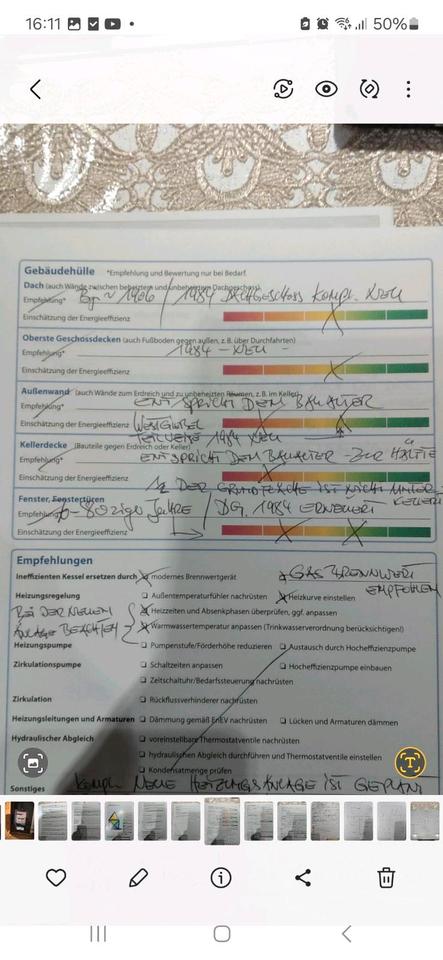 16:11 50%
Gebäudehülle *Empfehlung und Bewertung nur bei Bedarf.
Dach (auch Wände zwischen beheiztem und unbeheiztem Dachgeschoss)
Empfehlung* Bj ~ 1906 / 1984 DACHGESCHOSS KOMPL. NEU
Einschätzung der Energieeffizienz
Oberste Geschossdecken (auch Fußboden gegen außen, z.B. über Durchfahrten)
Empfehlung* 1984 - NEU -
Einschätzung der Energieeffizienz
Außenwand (auch Wände zum Erdreich und zu unbeheizten Räumen, z.B. im Keller)
Empfehlung* ENTSPRICHT DEM BAUALTER
Einschätzung der Energieeffizienz WESTGIEBEL
TEILWEISE 1984 NEU
Kellerdecke (Bauteile gegen Erdreich oder Keller)
Empfehlung* ENTSPRICHT DEM BAUALTER - ZUR HÄLFTE
Einschätzung der Energieeffizienz
1/2 DER GRUNDFLÄCHE IST NICHT UNTERKELLERT
Fenster, Fenstertüren
Empfehlung* 80ziger Jahre / DG. 1984 ERNEUERT
Einschätzung der Energieeffizienz
Empfehlungen
Ineffizienten Kessel ersetzen durch modernes Brennwertgerät GASBRENNWERT
EMPFOHLEN
Heizungsregelung Außentemperaturfühler nachrüsten Heizkurve einstellen
BEI DER NEUEN Heizzeiten und Absenkphasen überprüfen, ggf. anpassen
ANLAGE BEACHTEN Warmwassertemperatur anpassen (Trinkwasserverordnung berücksichtigen!)
Heizungspumpe Pumpenstufe/Förderhöhe reduzieren Austausch durch Hocheffizienzpumpe
Zirkulationspumpe Schaltzeiten anpassen Hocheffizienzpumpe einbauen
Zeitschaltuhr/Bedarfssteuerung nachrüsten
Zirkulation Rückflussverhinderer nachrüsten
Heizungsleitungen und Armaturen Dämmung gemäß EnEV nachrüsten Lücken und Armaturen dämmen
Hydraulischer Abgleich voreinstellbare Thermostatventile nachrüsten
hydraulischen Abgleich durchführen und Thermostatventile einstellen
Kondensatmenge prüfen
Sonstiges KOMPL. NEUE HEIZUNGSANLAGE IST GEPLANT